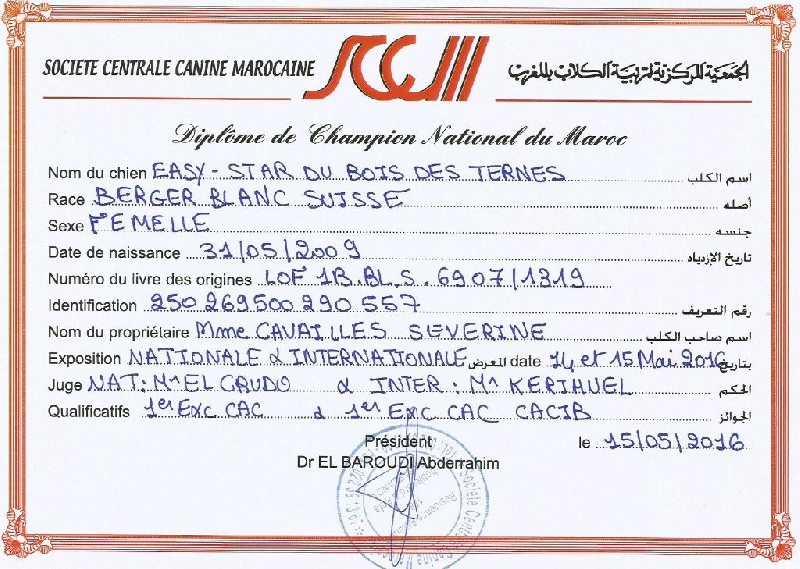 SOCIETE CENTRALE CANINE MAROCAINE
الجمعية المركزية لتربية الكلاب بالمغرب
Diplôme de Champion National du Maroc
Nom du chien EASY - STAR DU BOIS DES TERNES اسم الكلب
Race BERGER BLANC SUISSE أصله
Sexe FEMELLE جنسه
Date de naissance 31/05/2009 تاريخ الإزدياد
Numéro du livre des origines LOF 1B.BL.S. 6907/1319
Identification 250 269500 290 557 رقم التعريف
Nom du propriétaire Mme CAVAILLES SEVERINE اسم صاحب الكلب
Exposition NATIONALE & INTERNATIONALE المعرض date 14 et 15 Mai 2016 بتاريخ
Juge NAT: Mr EL GRUDO & INTER : Mr KERIHUEL الحكم
Qualificatifs 1er Exc CAC & 1er Exc CAC CACIB الجوائز
Président le 15/05/2016
Dr EL BAROUDI Abderrahim